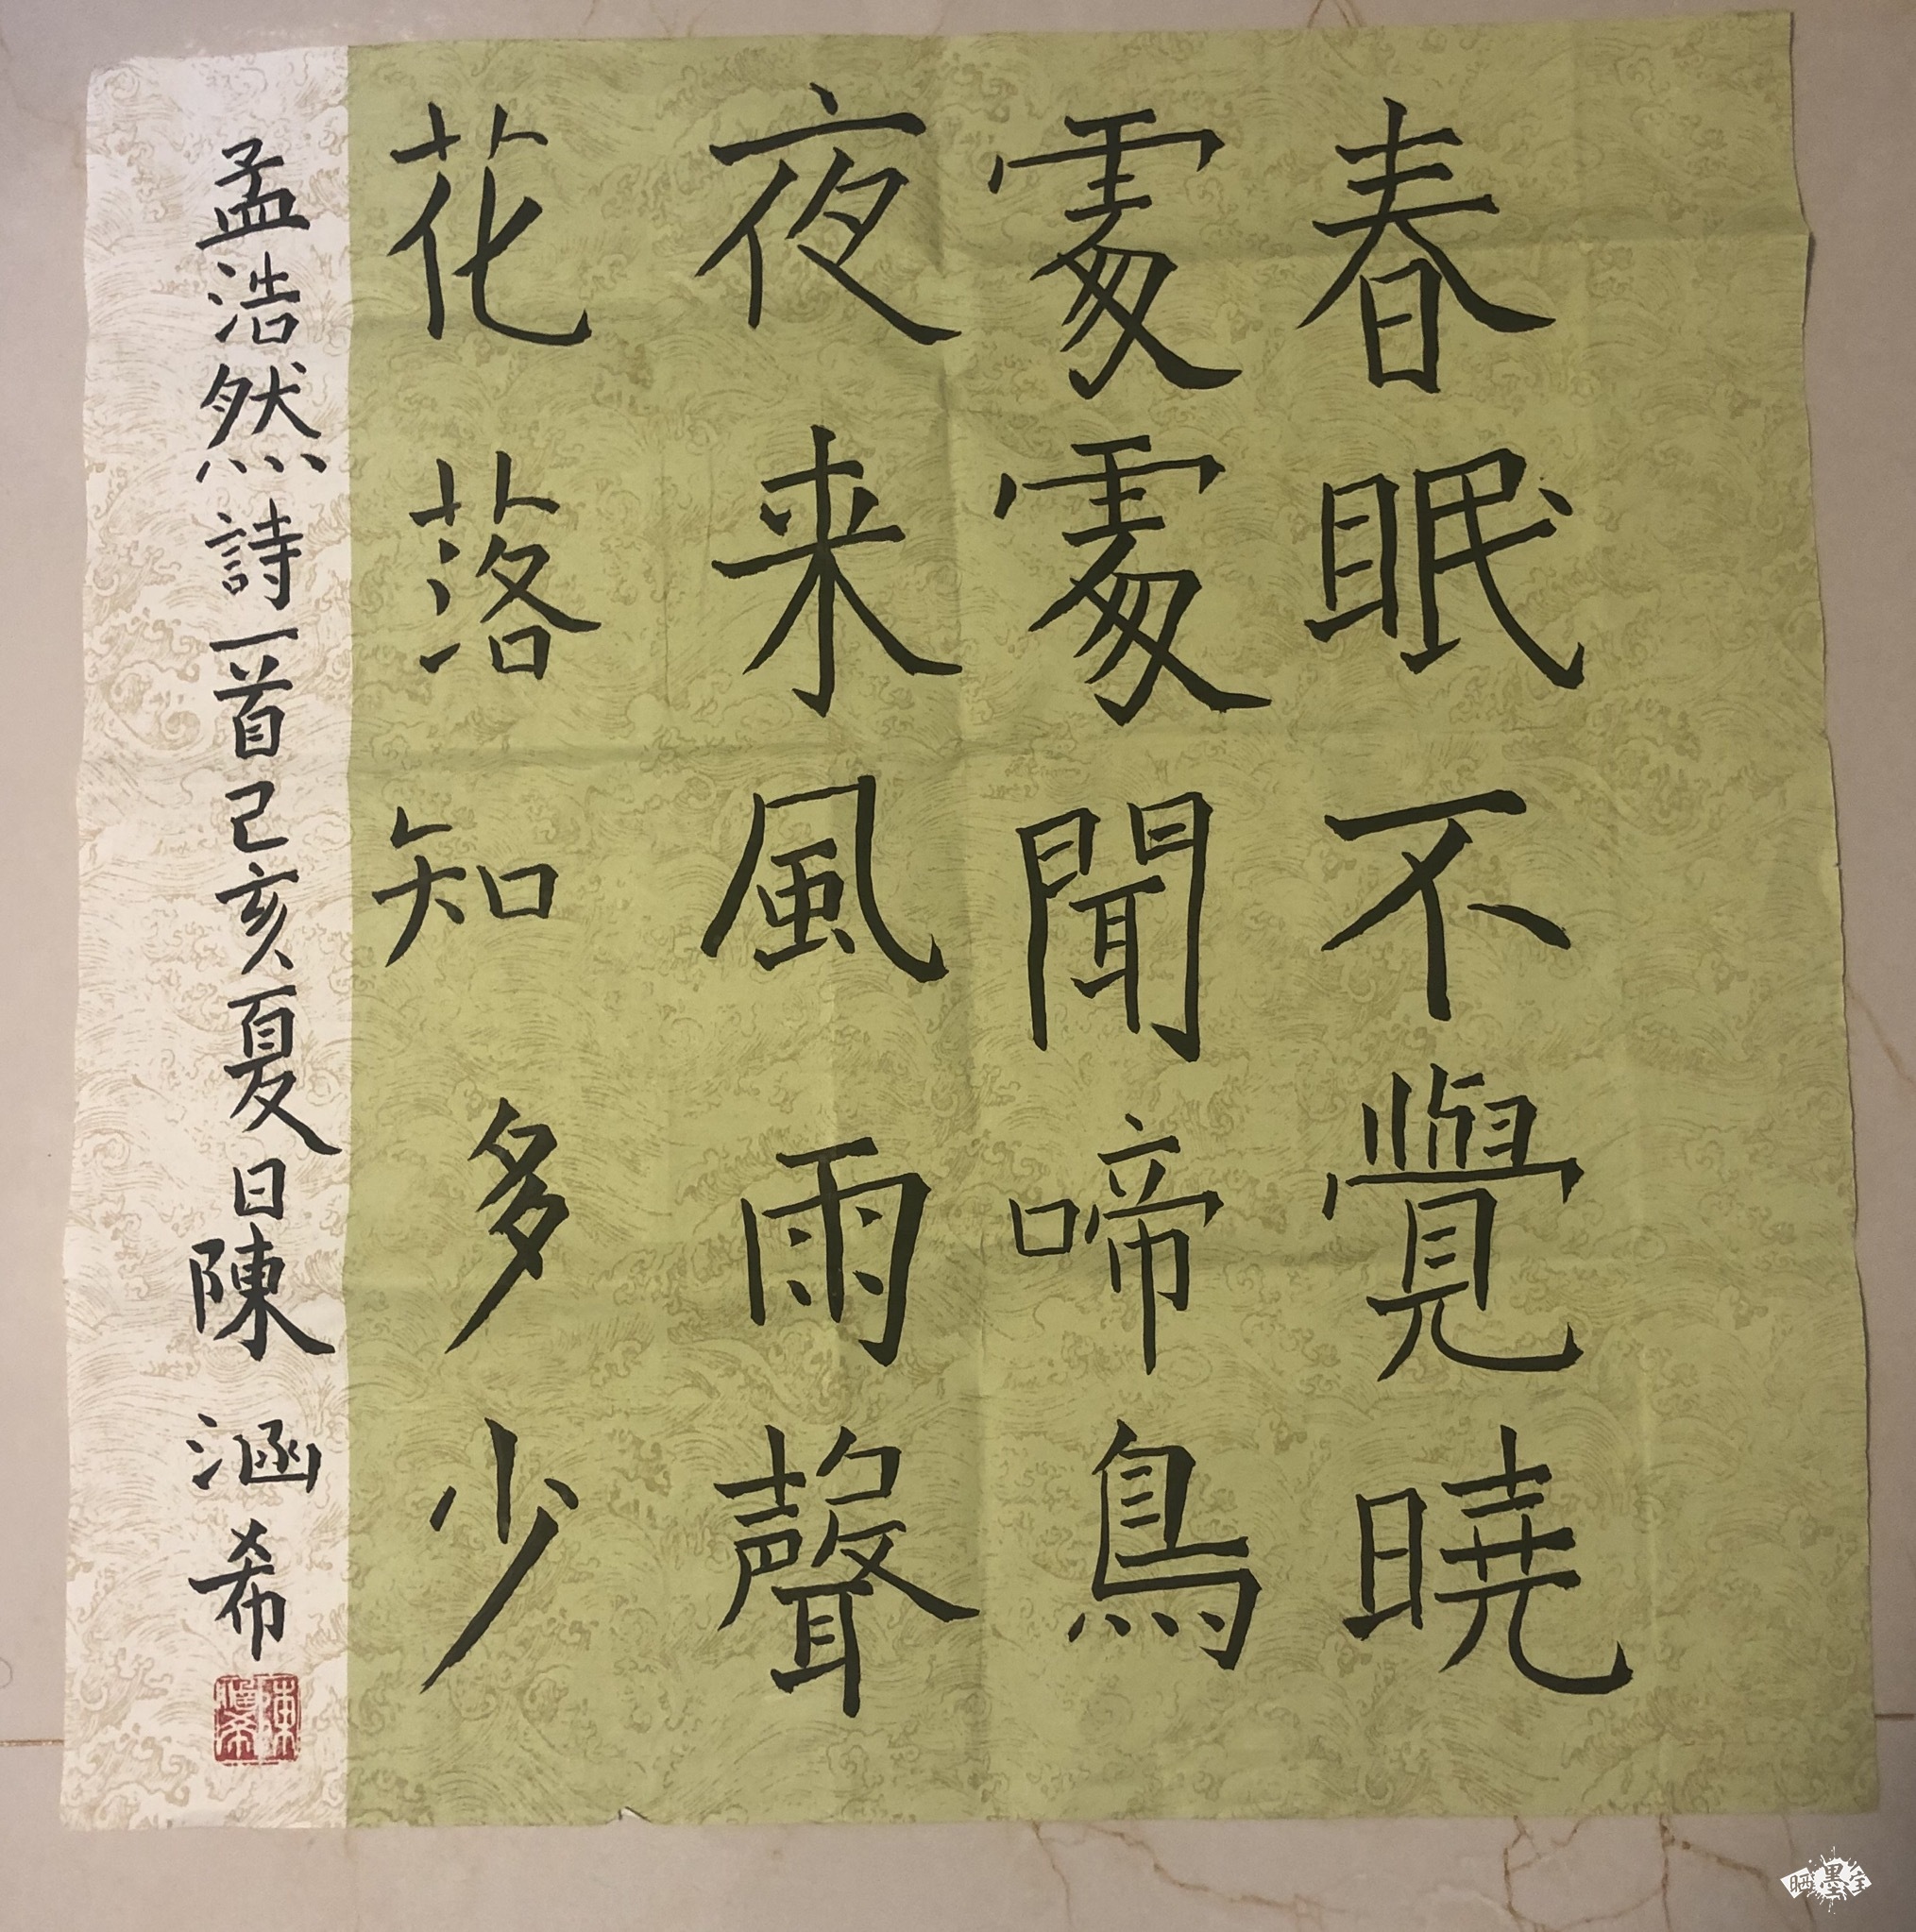 春眠不覺曉
處處聞啼鳥
夜来風雨聲
花落知多少
孟浩然詩一首己亥夏日陳涵希
陳涵希
晒墨宝